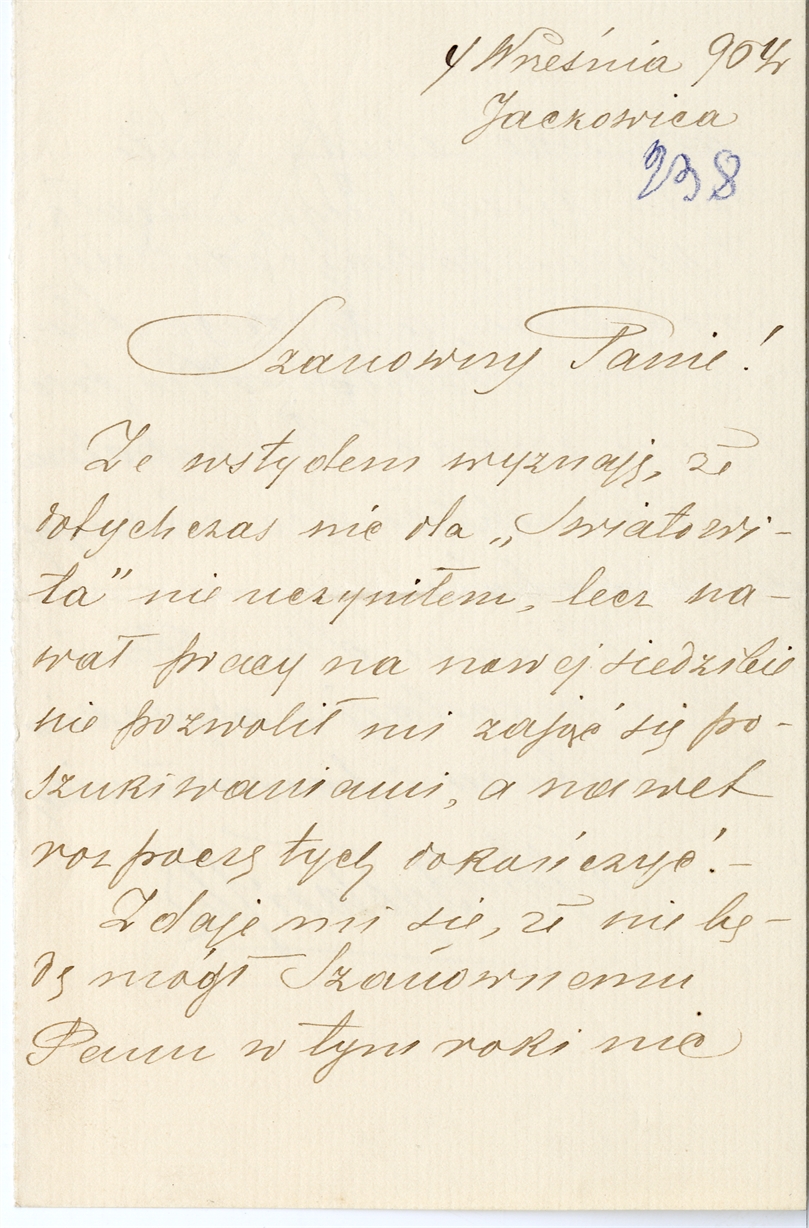 4 Września 904
Jackowica
238
Szanowny Panie!
Ze wstydem wyznaję, że
dotychczas nic dla „Światowi-
ta” nie uczyniłem, lecz na-
wał pracy na nowej siedzibie
nie pozwolił mi zająć się po-
szukiwaniami, a nawet
rozpoczętych dokończyć. –
Zdaje mi się, że nie bę-
dę mógł Szanownemu
Panu w tym roku nic